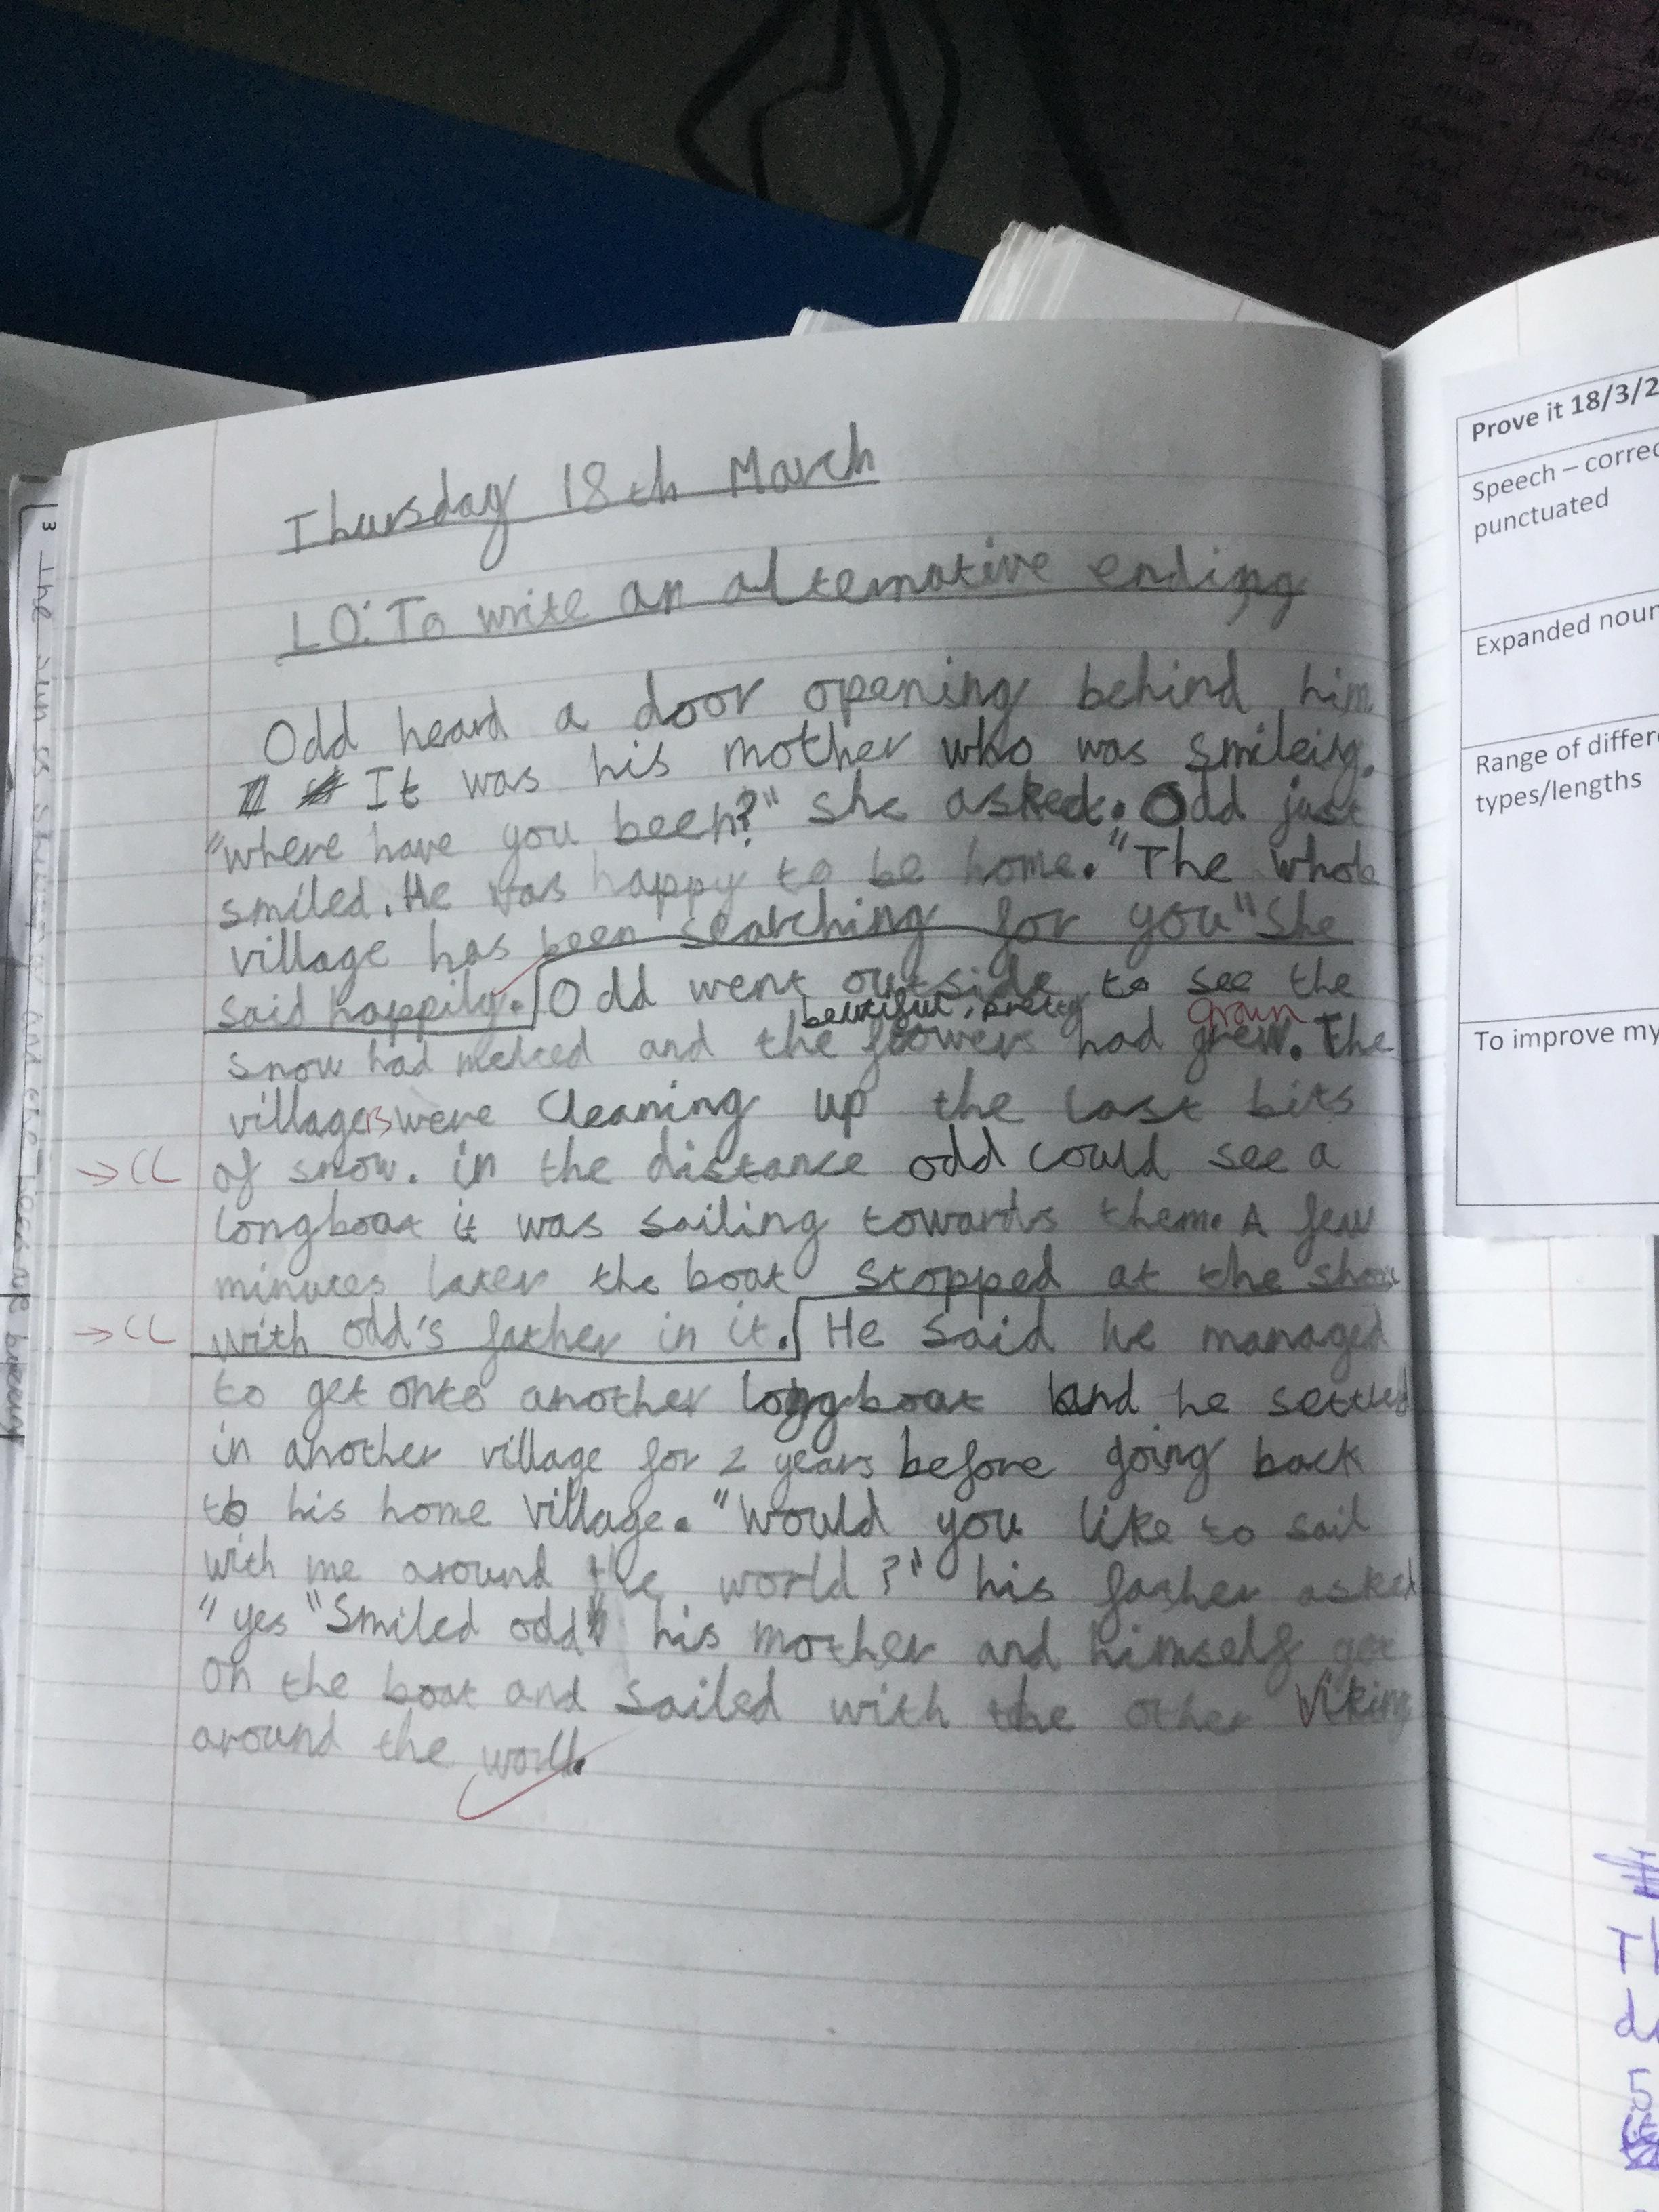 Thursday 18th March
LO: To write an alternative ending
Odd heard a door opening behind him
It was his mother who was smileing.
"where have you been?" she asked. Odd just
smiled. He was happy to be home. "The whole
village has been searching for you" She
said happily. Odd went outside to see the
beutiful, pretty grown
snow had melted and the flowers had grew. The
villagers were cleaning up the last bits
→ CL of snow. in the distance odd could see a
longboat it was sailing towards them. A few
minutes later the boat stopped at the
→ CL with odd's father in it. He said he managed
to get onto another longboat and he settled
in another village for 2 years before going back
to his home village. "Would you like to sail
with me around the world?" his father asked
"yes" Smiled odd his mother and himself got
on the boat and sailed with the other Viking
around the world.
Prove it 18/3/2
Speech – correc
punctuated
Expanded noun
Range of differe
types/lengths
To improve my
Th
5